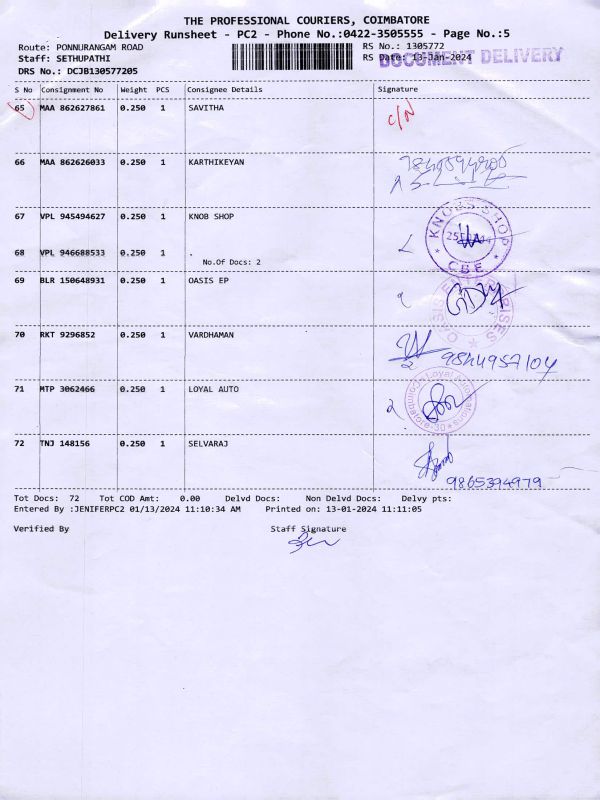 THE PROFESSIONAL COURIERS, COIMBATORE
Delivery Runsheet - PC2 - Phone No.:0422-3505555 - Page No.:5
Route: PONNURANGAM ROAD RS No.: 1305772
Staff: SETHUPATHI RS Date: 13-Jan-2024
DOCUMENT DELIVERY
DRS No.: DCJB130577205
S No Consignment No Weight PCS Consignee Details Signature
65 MAA 862627861 0.250 1 SAVITHA C/N
66 MAA 862626033 0.250 1 KARTHIKEYAN
67 VPL 945494627 0.250 1 KNOB SHOP
KNOBS SHOP
CBE
68 VPL 946688533 0.250 1 .
No.Of Docs: 2
69 BLR 150648931 0.250 1 OASIS EP
70 RKT 9296852 0.250 1 VARDHAMAN
9844957104
71 MTP 3062466 0.250 1 LOYAL AUTO
72 TNJ 148156 0.250 1 SELVARAJ
9865394979
Tot Docs: 72 Tot COD Amt: 0.00 Delvd Docs: Non Delvd Docs: Delvy pts:
Entered By :JENIFERPC2 01/13/2024 11:10:34 AM Printed on: 13-01-2024 11:11:05
Verified By Staff Signature